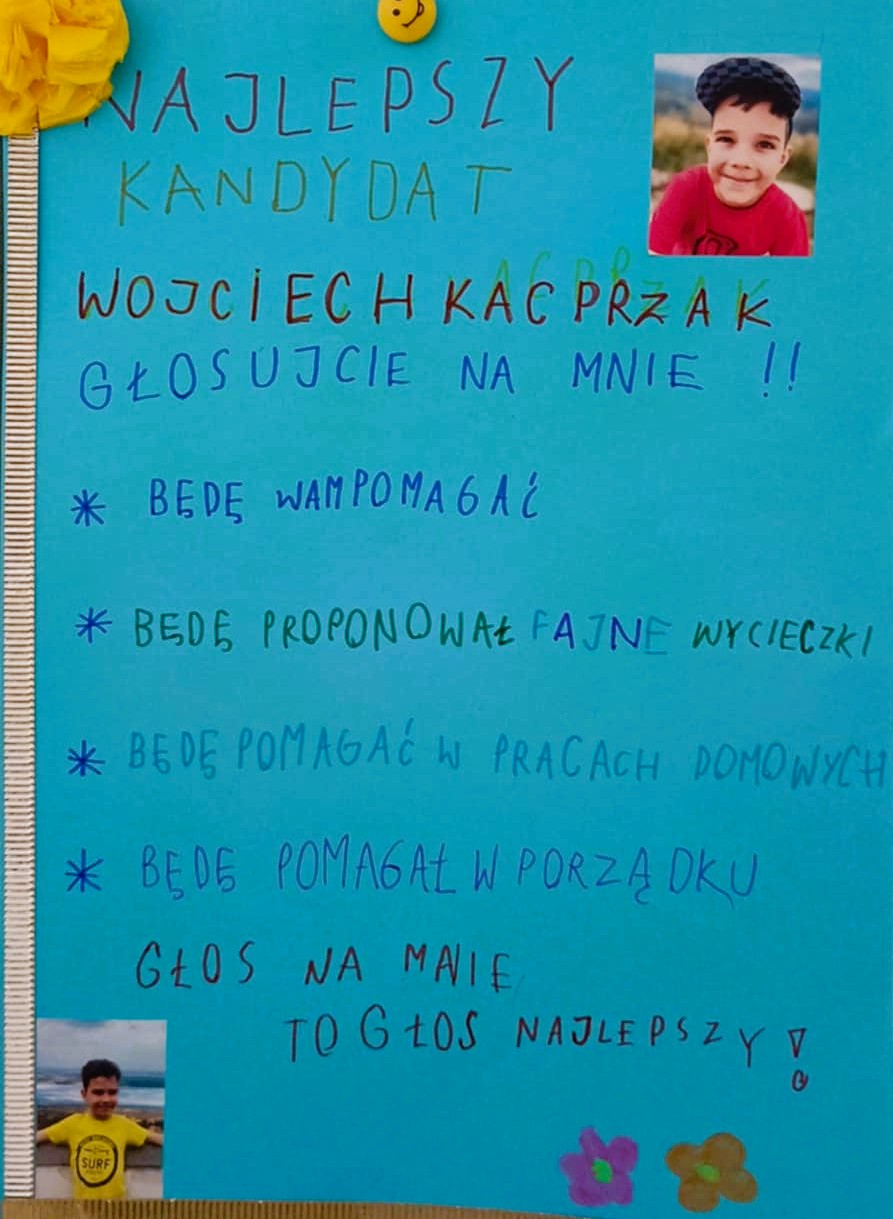 NAJLEPSZY
KANDYDAT
WOJCIECH KACPRZAK
GŁOSUJCIE NA MNIE !!
* BĘDĘ WAM POMAGAĆ
* BĘDĘ PROPONOWAŁ FAJNE WYCIECZKI
* BĘDĘ POMAGAĆ W PRACACH DOMOWYCH
* BĘDĘ POMAGAŁ W PORZĄDKU
GŁOS NA MNIE
TO GŁOS NAJLEPSZY!
SURF